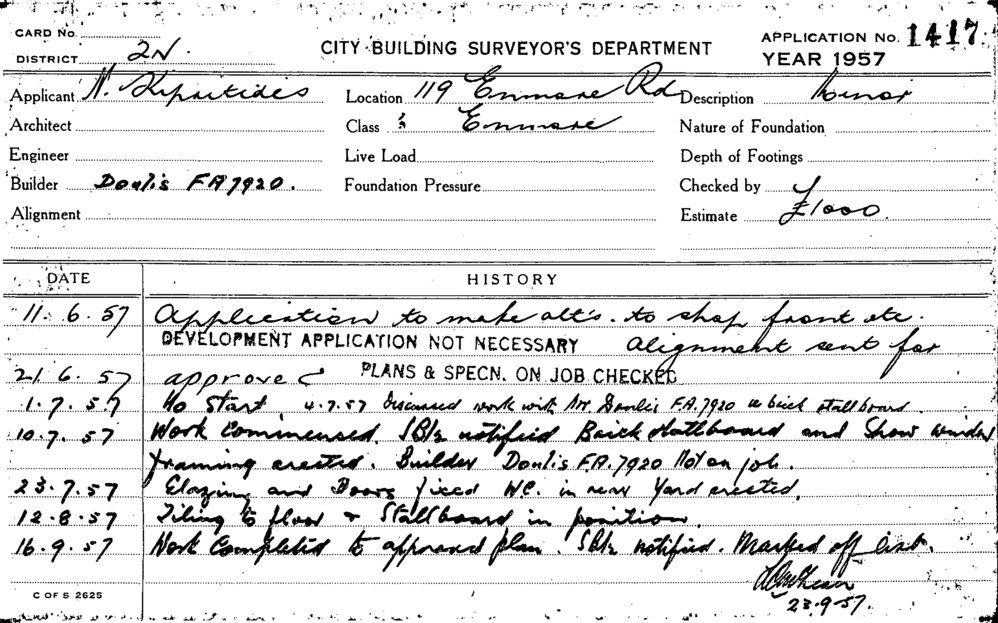 CARD No.
DISTRICT 2N
CITY BUILDING SURVEYOR'S DEPARTMENT
APPLICATION No. 1417
YEAR 1957
Applicant N. Kipritides Location 119 Enmore Rd Description Minor
Architect Class Enmore Nature of Foundation
Engineer Live Load Depth of Footings
Builder Doulis FA 7920. Foundation Pressure Checked by
Alignment Estimate £1000
DATE HISTORY
11. 6. 57 Application to make alt's. to shop front etc.
DEVELOPMENT APPLICATION NOT NECESSARY Alignment sent for
21 6. 57 approved PLANS & SPECN. ON JOB CHECKED
1. 7. 57 No Start. 4.7.57 Discussed work with Mr. Doulis F.A.7920 re brick stallboard.
10.7. 57 Work Commenced. notified Brick stallboard and Show window
framing erected. Builder Doulis F.A.7920 Not on job.
23.7.57 Glazing and Doors fixed W.C. in rear Yard erected.
12.8.57 Tiling to floor & Stallboard in position.
16.9.57 Work Completed to approved plan. notified. Marked off list.
23.9.57.
C OF S 2625